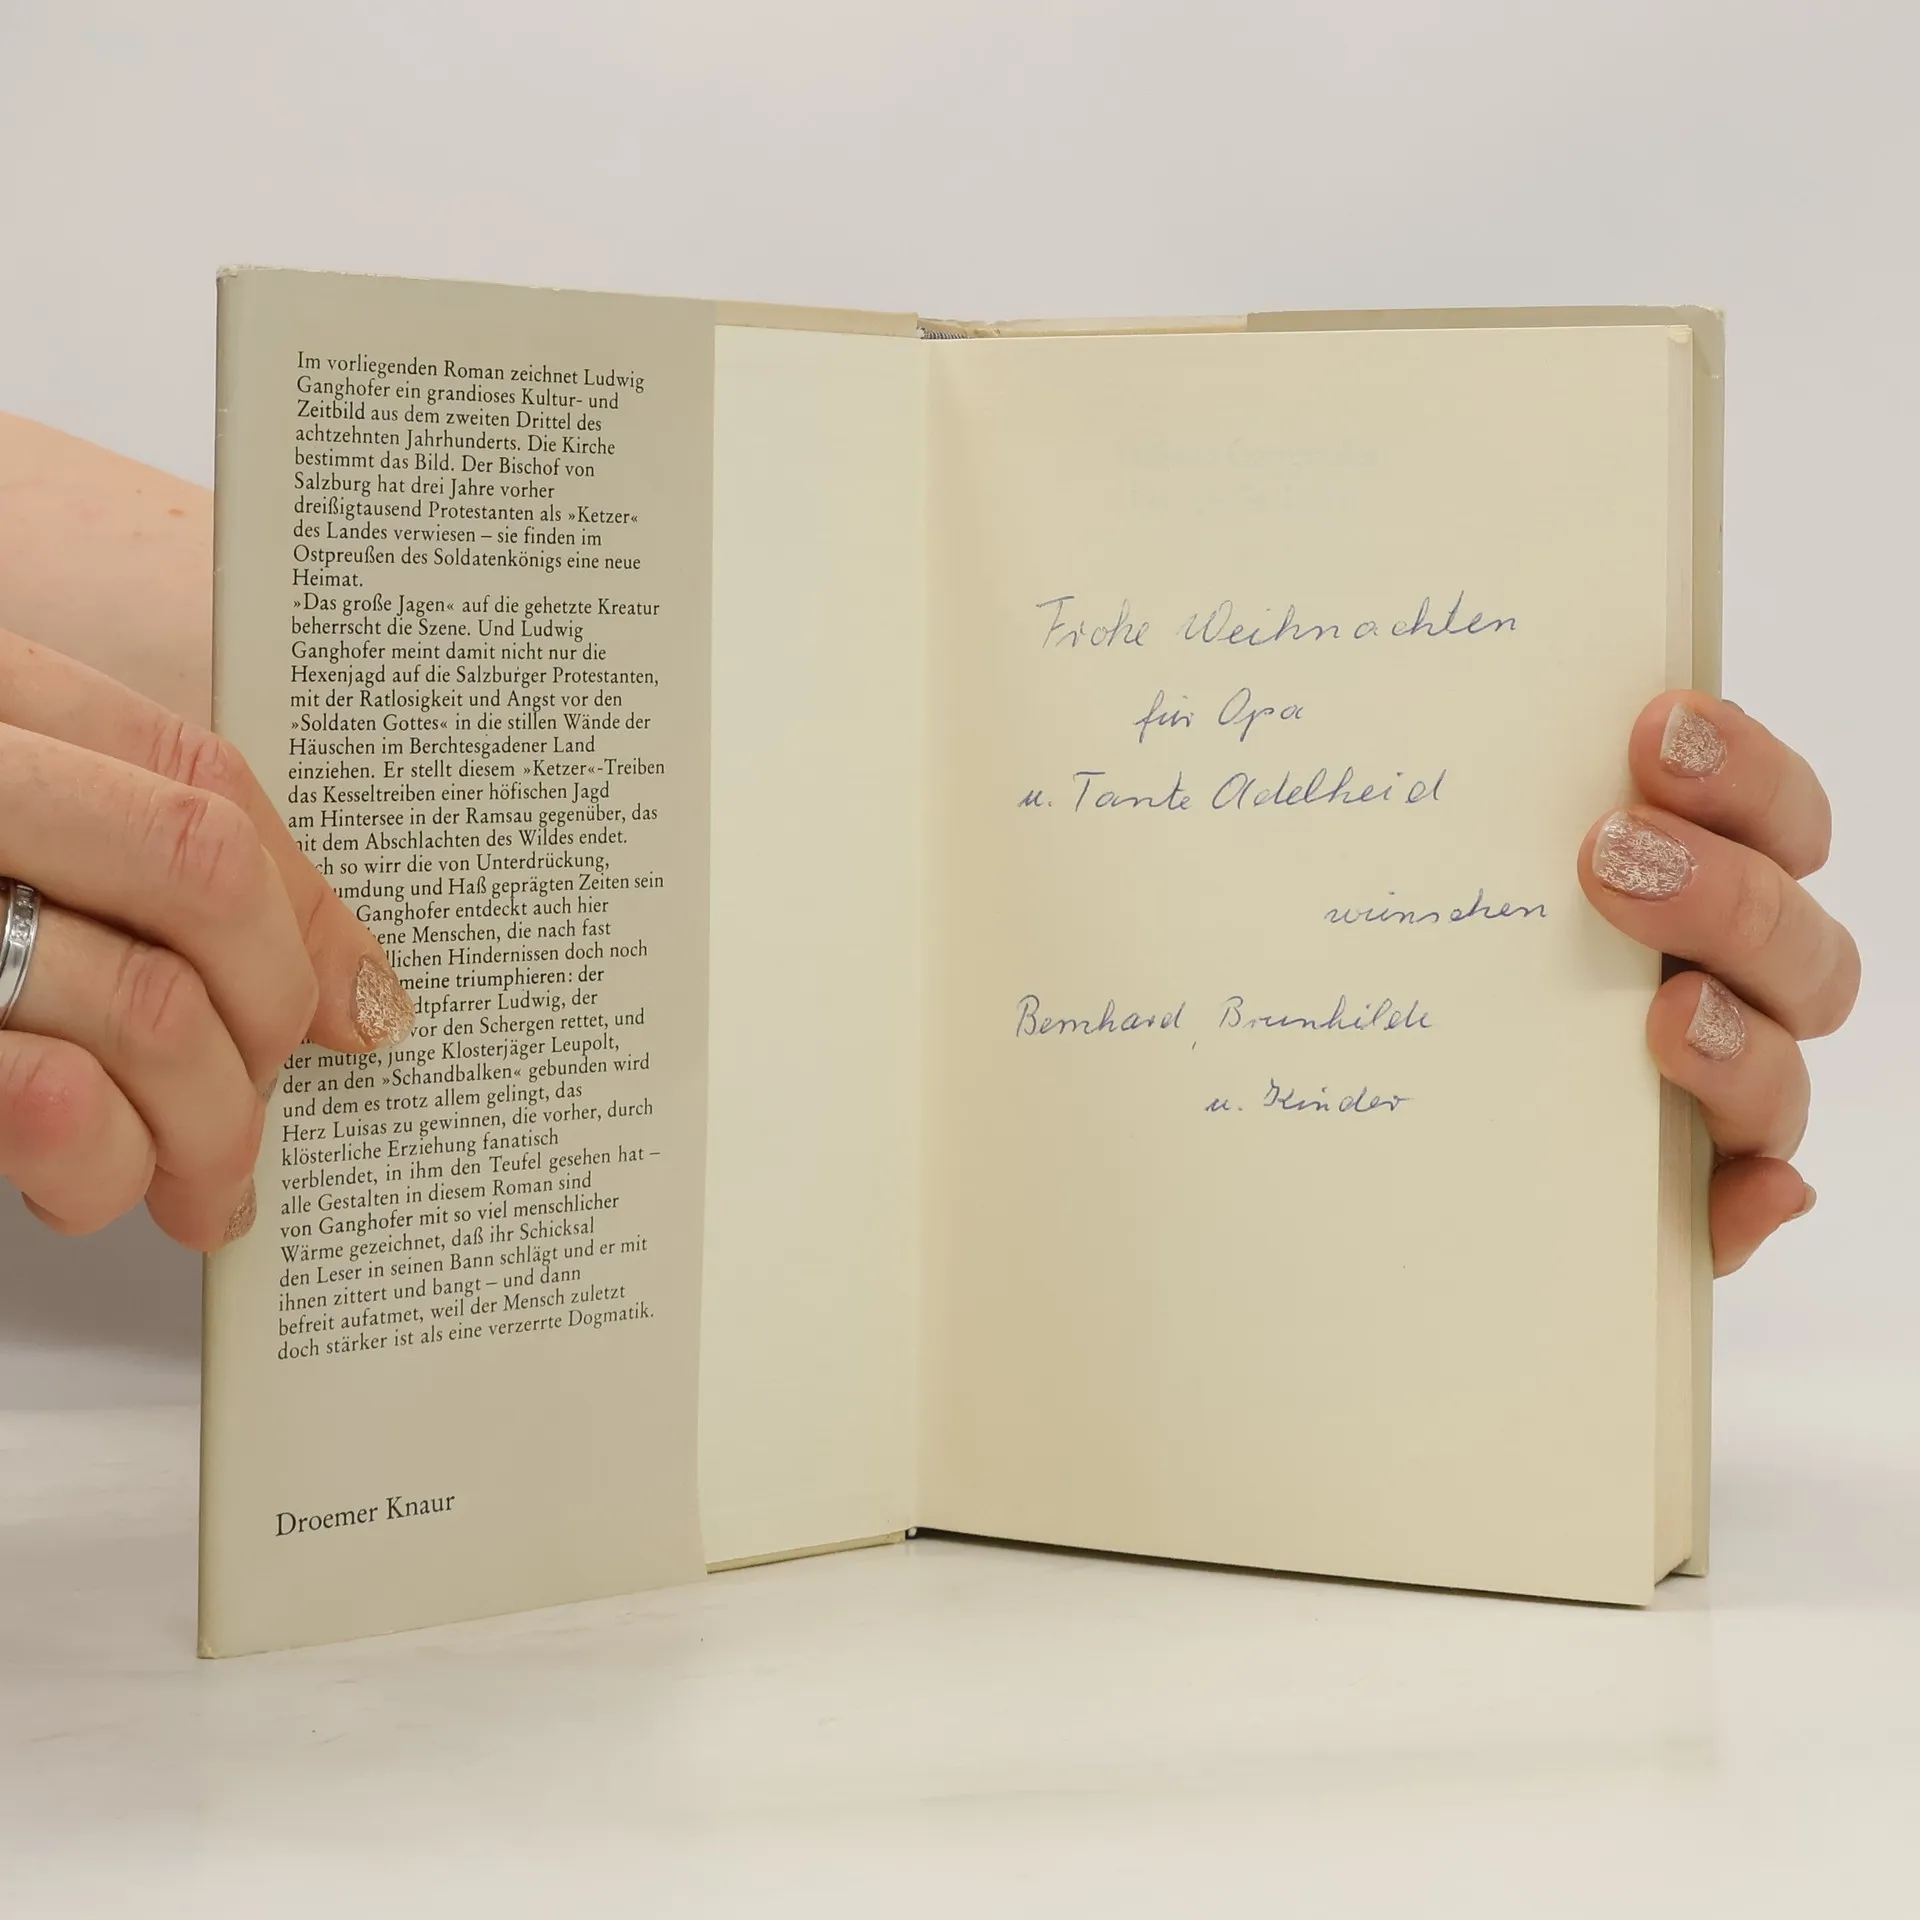 Im vorliegenden Roman zeichnet Ludwig
Ganghofer ein grandioses Kultur- und
Zeitbild aus dem zweiten Drittel des
achtzehnten Jahrhunderts. Die Kirche
bestimmt das Bild. Der Bischof von
Salzburg hat drei Jahre vorher
dreißigtausend Protestanten als »Ketzer«
des Landes verwiesen – sie finden im
Ostpreußen des Soldatenkönigs eine neue
Heimat.
»Das große Jagen« auf die gehetzte Kreatur
beherrscht die Szene. Und Ludwig
Ganghofer meint damit nicht nur die
Hexenjagd auf die Salzburger Protestanten,
mit der Ratlosigkeit und Angst vor den
»Soldaten Gottes« in die stillen Wände der
Häuschen im Berchtesgadener Land
einziehen. Er stellt diesem »Ketzer«-Treiben
das Kesseltreiben einer höfischen Jagd
am Hintersee in der Ramsau gegenüber, das
mit dem Abschlachten des Wildes endet.
so wirr die von Unterdrückung,
und Haß geprägten Zeiten sein
Ganghofer entdeckt auch hier
Menschen, die nach fast
Hindernissen doch noch
meine triumphieren: der
dtpfarrer Ludwig, der
vor den Schergen rettet, und
der mutige, junge Klosterjäger Leupolt,
der an den »Schandbalken« gebunden wird
und dem es trotz allem gelingt, das
Herz Luisas zu gewinnen, die vorher, durch
klösterliche Erziehung fanatisch
verblendet, in ihm den Teufel gesehen hat –
alle Gestalten in diesem Roman sind
von Ganghofer mit so viel menschlicher
Wärme gezeichnet, daß ihr Schicksal
den Leser in seinen Bann schlägt und er mit
ihnen zittert und bangt – und dann
befreit aufatmet, weil der Mensch zuletzt
doch stärker ist als eine verzerrte Dogmatik.
Droemer Knaur
Frohe Weihnachten
für Opa
u. Tante Adelheid
wünschen
Bernhard, Brunhilde
u. Kinder